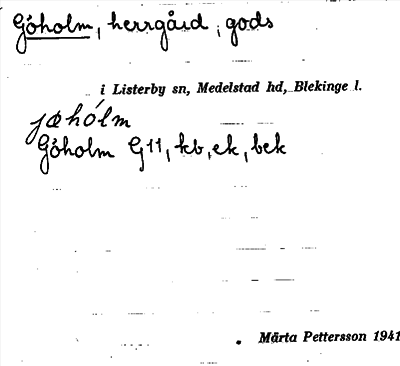 Göholm, herrgård, gods
i Listerby sn, Medelstad hd, Blekinge l.
jøhólm
Göholm G11, kb, ek, bek
Märta Pettersson 1941